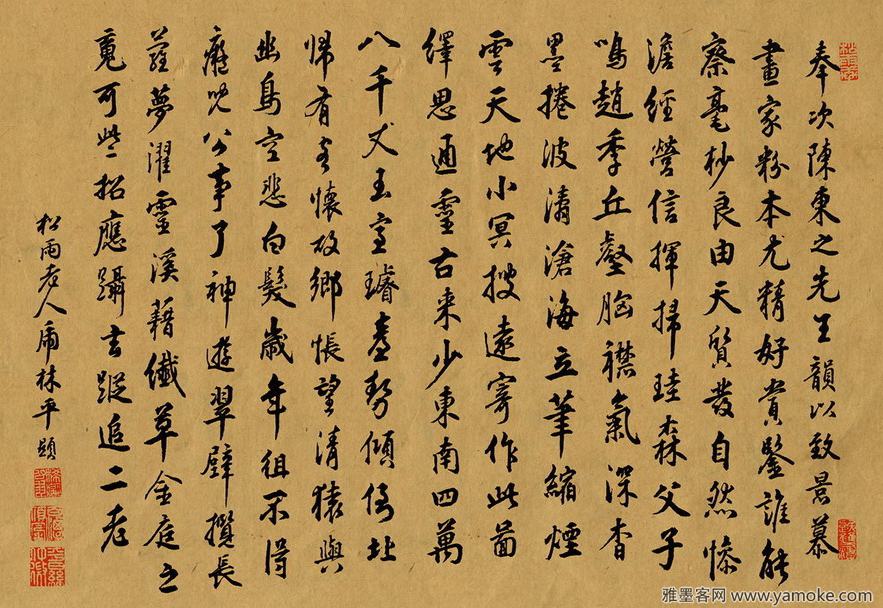 奉次陳東之先生韻以致景慕
畫家粉本尤精好賞鑒誰能
察毫杪良由天質發自然慘
澹經營信揮掃珪森父子
鳴趙季丘壑胸襟氣深杳
墨捲波濤滄海立筆縮煙
雲天地小冥搜遠寄作此圖
繹思通靈古来少東南四萬
八千丈玉室璿臺勢傾倚北
歸有客懷故鄉悵望清猿與
幽鳥空悲白髮歲年徂不得
癡兒公事了神遊翠壁攬長
蘿夢濯靈溪藉纖草金庭之
寬可些招應躡玄蹤追二老
松雨老人虎林平題
雅墨客网 www.yamoke.com